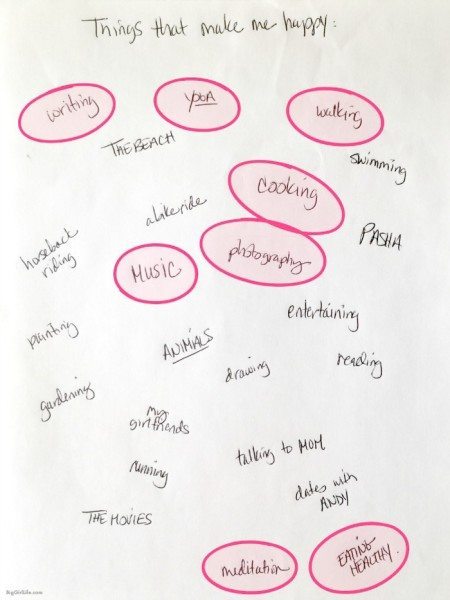 Things that make me happy:
writing
YOGA
walking
THE BEACH
swimming
cooking
a bike ride
PASHA
horseback
riding
photography
MUSIC
entertaining
painting
ANIMALS
reading
drawing
gardening
my
girlfriends
talking to MOM
running
dates with
ANDY
THE MOVIES
meditation
EATING
HEALTHY.